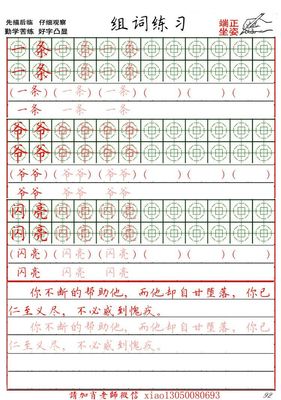 先描后临 仔细观察
勤学苦练 好字凸显
组词练习
端正
坐姿
一条
一条
(一条)(一条)(一条)( )( )( )
一条 一条 一条
爷爷
爷爷
(爷爷)(爷爷)(爷爷)( )( )( )
爷爷 爷爷 爷爷
闪亮
闪亮
(闪亮)(闪亮)(闪亮)( )( )( )
闪亮 闪亮 闪亮
你不断的帮助他，而他却自甘堕落，你已
仁至义尽，不必感到愧疚。
你不断的帮助他，而他却自甘堕落，你已
仁至义尽，不必感到愧疚。
请加肖老师微信 xiao13050080693
92